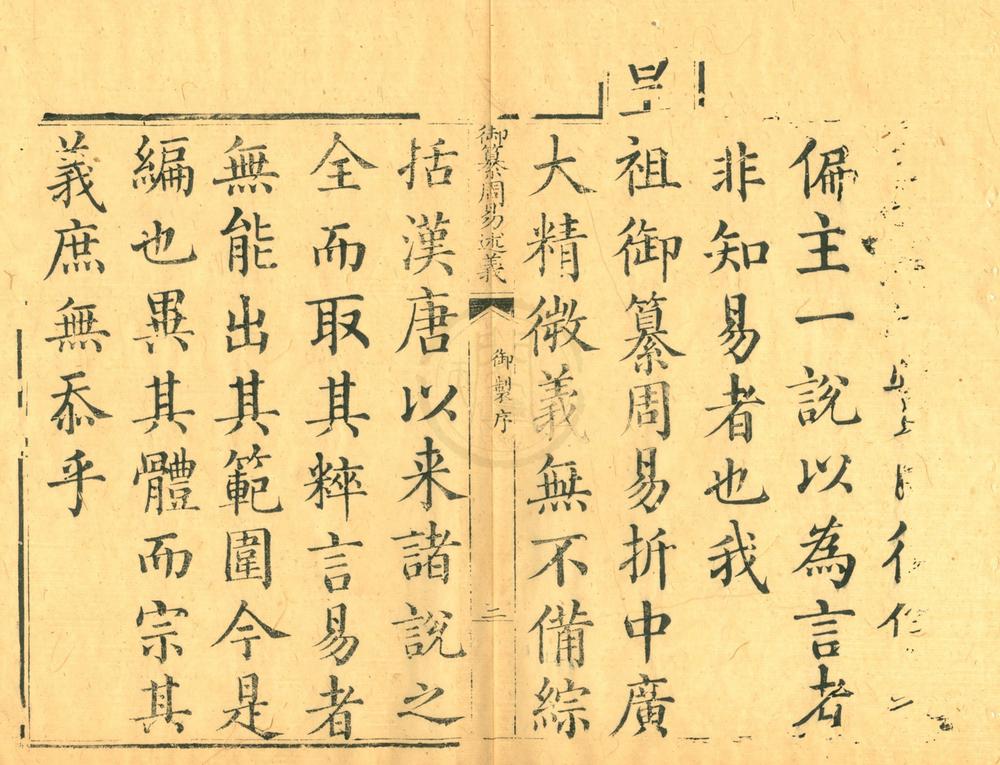 偏主一說以為言者
非知易者也我
皇
祖御纂周易折中廣
大精微義無不備綜
御纂周易述義
御製序
二
括漢唐以来諸說之
全而取其粹言易者
無能出其範圍今是
編也異其體而宗其
義庶無忝乎